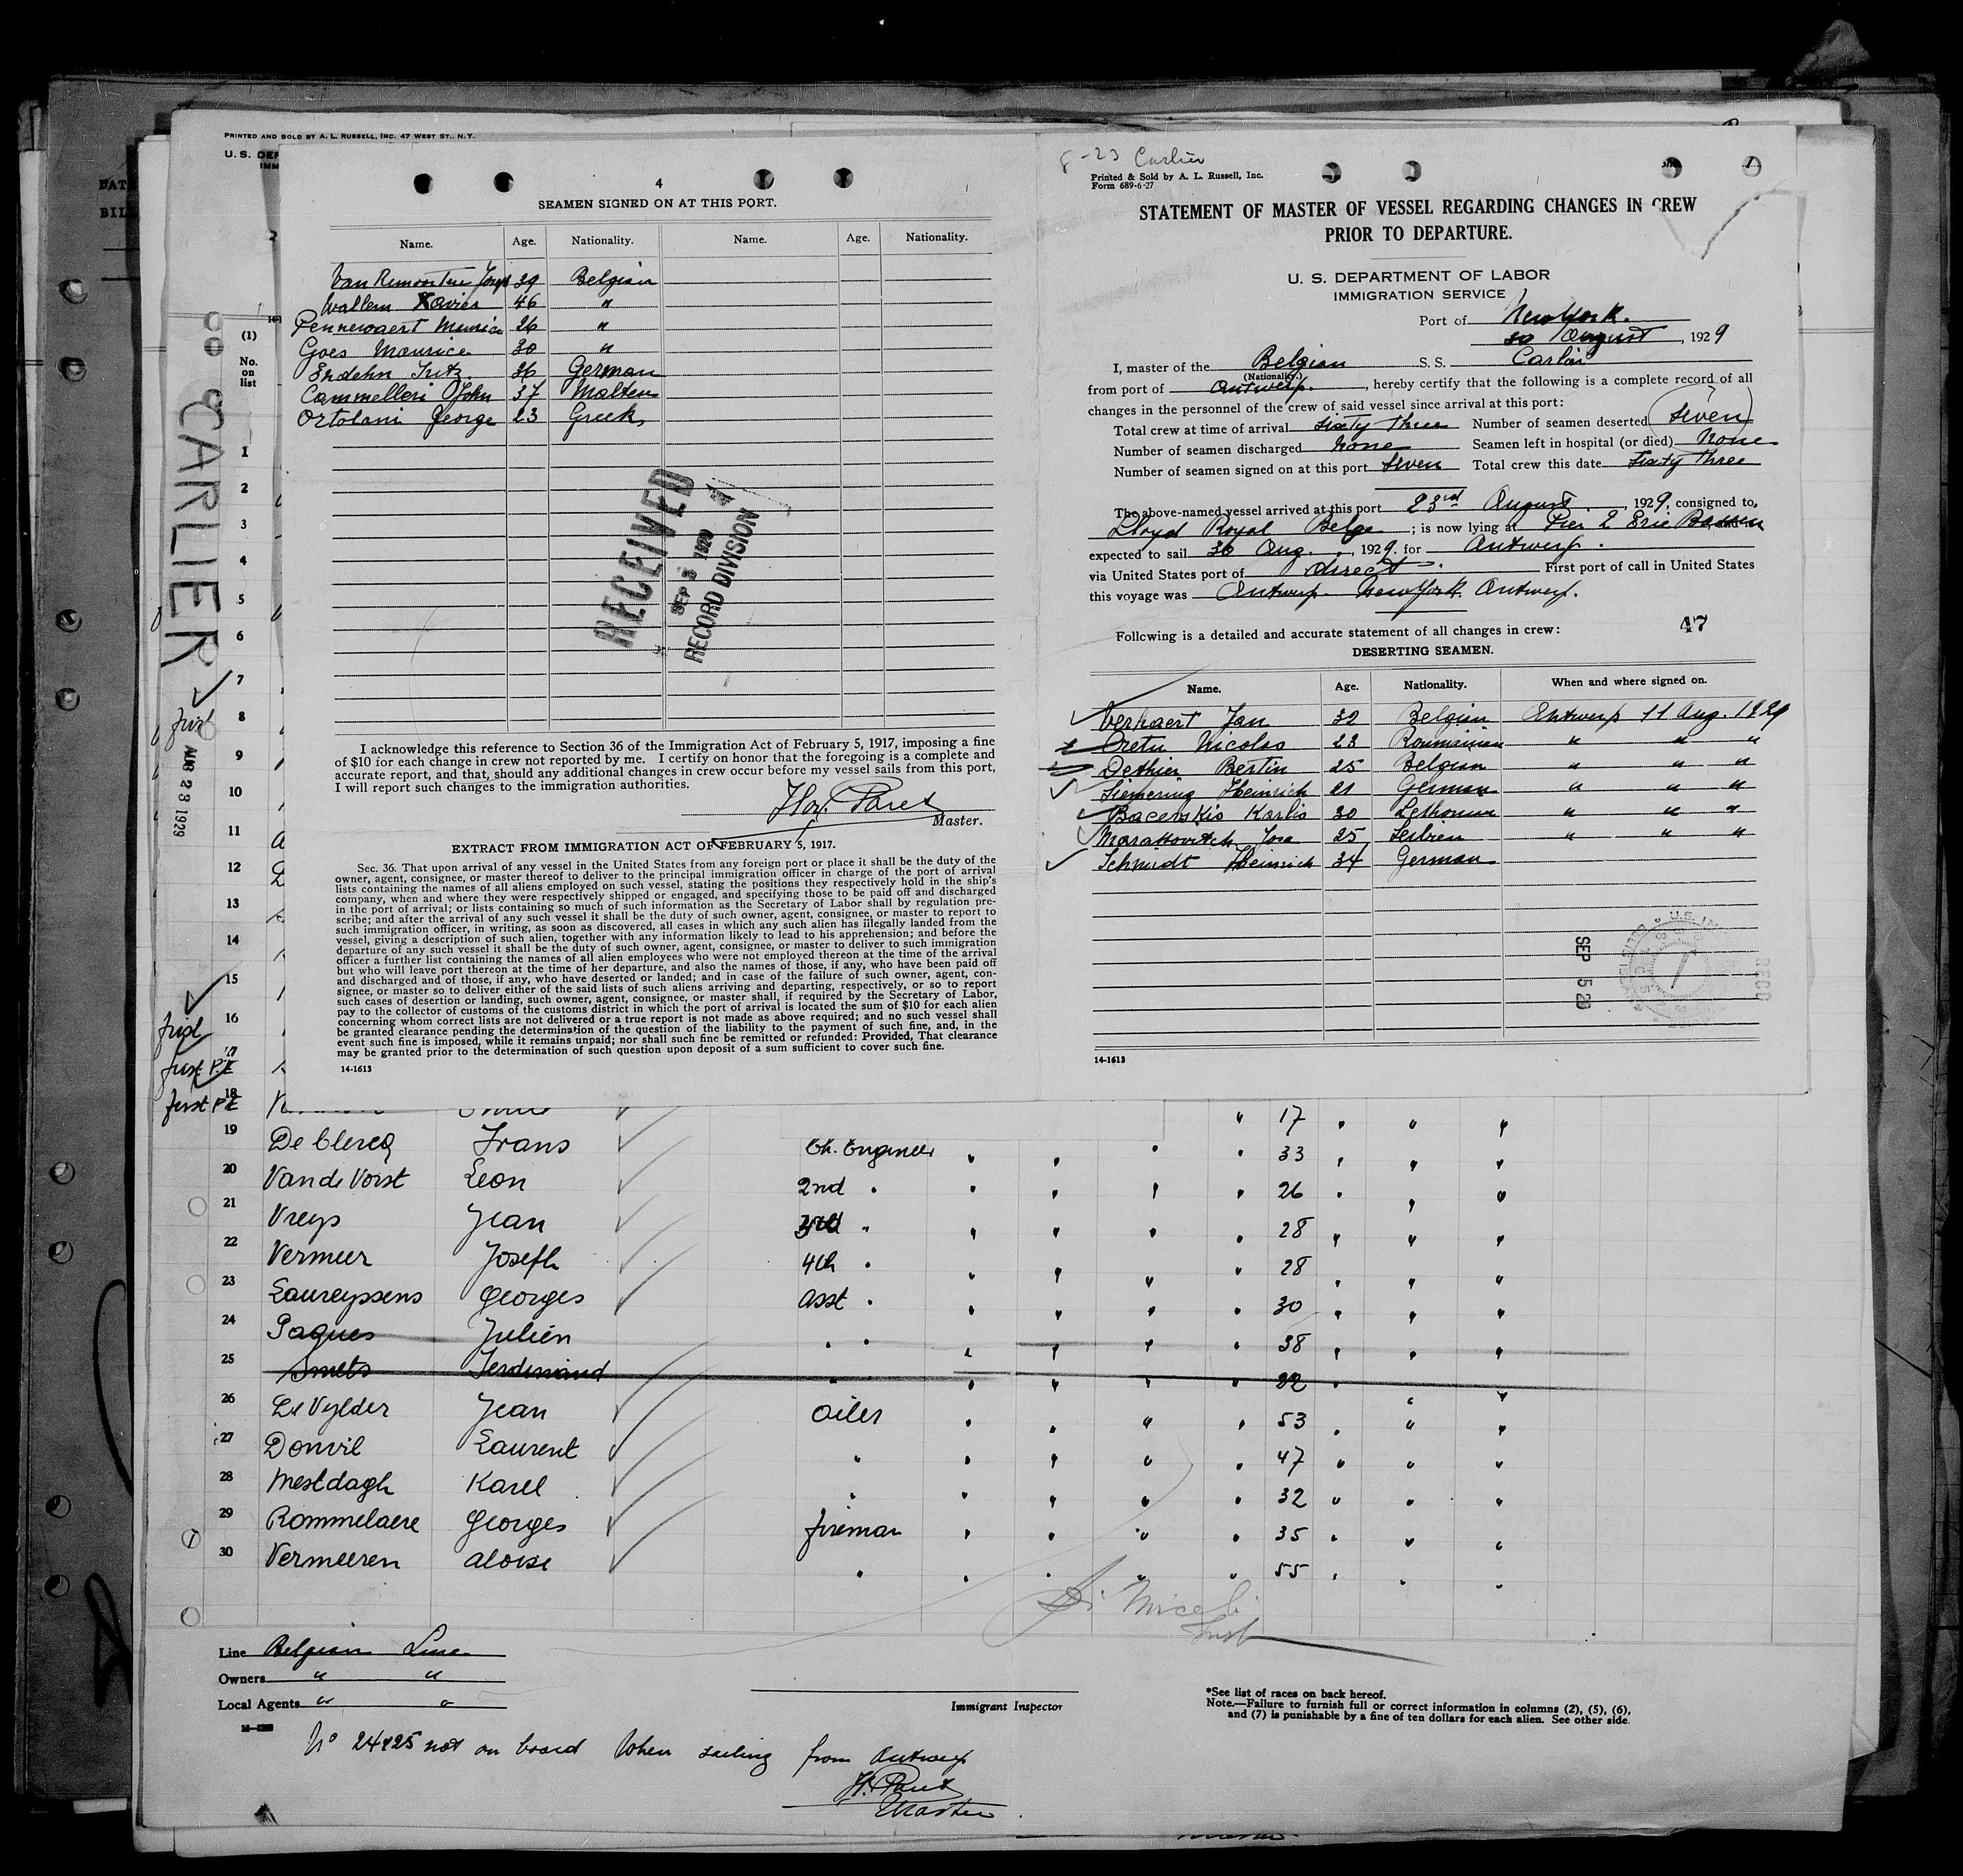 PRINTED AND SOLD BY A. L. RUSSELL, INC. 47 WEST ST., N.Y.
U. S. DEP
IMM
DATE
BILL
(1)
No.
on
list
CARLIER
AUG 23 1929
4
SEAMEN SIGNED ON AT THIS PORT.
Name. Age. Nationality. Name. Age. Nationality.
39 Belgian
Wallem Xavier 46 "
Pennewaert Maurice 26 "
Goes Maurice 30 "
Endehn Fritz 36 German
Cammelleri John 37 Maltese
Ortolani George 23 Greek
RECEIVED
SEP 5 1929
RECORD DIVISION
I acknowledge this reference to Section 36 of the Immigration Act of February 5, 1917, imposing a fine
of $10 for each change in crew not reported by me. I certify on honor that the foregoing is a complete and
accurate report, and that, should any additional changes in crew occur before my vessel sails from this port,
I will report such changes to the immigration authorities.
Paret
Master.
EXTRACT FROM IMMIGRATION ACT OF FEBRUARY 5, 1917.
Sec. 36. That upon arrival of any vessel in the United States from any foreign port or place it shall be the duty of the
owner, agent, consignee, or master thereof to deliver to the principal immigration officer in charge of the port of arrival
lists containing the names of all aliens employed on such vessel, stating the positions they respectively hold in the ship's
company, when and where they were respectively shipped or engaged, and specifying those to be paid off and discharged
in the port of arrival; or lists containing so much of such information as the Secretary of Labor shall by regulation pre-
scribe; and after the arrival of any such vessel it shall be the duty of such owner, agent, consignee, or master to report to
such immigration officer, in writing, as soon as discovered, all cases in which any such alien has illegally landed from the
vessel, giving a description of such alien, together with any information likely to lead to his apprehension; and before the
departure of any such vessel it shall be the duty of such owner, agent, consignee, or master to deliver to such immigration
officer a further list containing the names of all alien employees who were not employed thereon at the time of the arrival
but who will leave port thereon at the time of her departure, and also the names of those, if any, who have been paid off
and discharged and of those, if any, who have deserted or landed; and in case of the failure of such owner, agent, con-
signee, or master so to deliver either of the said lists of such aliens arriving and departing, respectively, or so to report
such cases of desertion or landing, such owner, agent, consignee, or master shall, if required by the Secretary of Labor,
pay to the collector of customs of the customs district in which the port of arrival is located the sum of $10 for each alien
concerning whom correct lists are not delivered or a true report is not made as above required; and no such vessel shall
be granted clearance pending the determination of the question of the liability to the payment of such fine, and, in the
event such fine is imposed, while it remains unpaid; nor shall such fine be remitted or refunded: Provided, That clearance
may be granted prior to the determination of such question upon deposit of a sum sufficient to cover such fine.
14-1613
8-23 Carlier
Printed & Sold by A. L. Russell, Inc.
Form 689-6-27
STATEMENT OF MASTER OF VESSEL REGARDING CHANGES IN CREW
PRIOR TO DEPARTURE.
U. S. DEPARTMENT OF LABOR
IMMIGRATION SERVICE
Port of New York.
30 August, 1929
I, master of the Belgian S. S. Carlier
(Nationality.)
from port of Antwerp., hereby certify that the following is a complete record of all
changes in the personnel of the crew of said vessel since arrival at this port:
Total crew at time of arrival sixty three Number of seamen deserted seven
Number of seamen discharged None Seamen left in hospital (or died) None
Number of seamen signed on at this port seven Total crew this date sixty three
The above-named vessel arrived at this port 23rd August, 1929, consigned to
Lloyd Royal Belge; is now lying at Pier 2 Erie Bassin
expected to sail 30 Aug., 1929. for Antwerp.
via United States port of direct. First port of call in United States
this voyage was Antwerp New York Antwerp.
Following is a detailed and accurate statement of all changes in crew: 47
DESERTING SEAMEN.
Name. Age. Nationality. When and where signed on.
Verhaert Jan 32 Belgian Antwerp 11 Aug. 1929
Cretu Nicolas 23 Roumanian " " "
Dethier Bertin 25 Belgian " " "
Siemering Heinrich 21 German " " "
Bacerskis Karlis 30 " " "
Marakovitch 25 Serbien " " "
Schmidt Heinrich 34 German
SEP 5 29
RECD
14-1613
1
2
3
4
5
6
7
8
9
10
11
12
13
14
15
16
17
first PE
18
first PE
" 17 " " "
19 De Clercq Frans Ch. Engineer " " " " 33 " " "
20 Van de Vorst Leon 2nd " " " " " 26 " " "
21 Vreys Jean 3rd " " " " " 28 " " "
22 Vermeer Joseph 4th " " " " " 28 " " "
23 Laureyssens Georges asst " " " " " 30 " " "
24 Paques Julien " " " " " " 38 " " "
25 Smets Ferdinand " " " " " " 22 " " "
26 De Vylder Jean oiler " " " " 53 " " "
27 Donvil Laurent " " " " " 47 " " "
28 Mestdagh Karel " " " " " 32 " " "
29 Rommelaere Georges fireman " " " " 35 " " "
30 Vermeeren Aloise " " " " " 55 " " "
Line Belgian Line
Owners " "
Local Agents " "
Immigrant Inspector
*See list of races on back hereof.
Note.—Failure to furnish full or correct information in columns (2), (5), (6),
and (7) is punishable by a fine of ten dollars for each alien. See other side.
No 24+25 not on board when sailing from Antwerp
H. Paret
Master